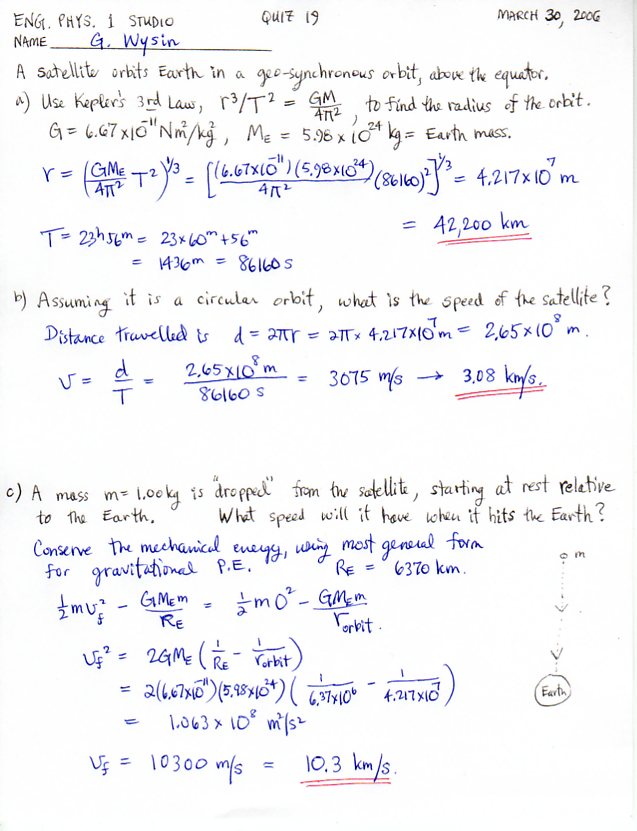 ENG. PHYS. 1 STUDIO QUIZ 19 MARCH 30, 2006
NAME G. Wysin
A satellite orbits Earth in a geo-synchronous orbit, above the equator.
a) Use Kepler's 3rd Law, r³/T² = GM/4π², to find the radius of the orbit.
G = 6.67 x10⁻¹¹ Nm²/kg², M_E = 5.98 x 10²⁴ kg = Earth mass.
r = (GM_E/4π² T²)^(1/3) = [(6.67x10⁻¹¹)(5.98x10²⁴)/4π² (86160)²]^(1/3) = 4.217x10⁷ m
T = 23h56m = 23x60m+56m = 42,200 km
= 1436m = 86160 s
b) Assuming it is a circular orbit, what is the speed of the satellite?
Distance travelled is d = 2πr = 2π x 4.217x10⁷m = 2.65x10⁸ m.
v = d/T = 2.65x10⁸ m/86160 s = 3075 m/s → 3.08 km/s.
c) A mass m= 1.00kg is "dropped" from the satellite, starting at rest relative
to the Earth. What speed will it have when it hits the Earth?
Conserve the mechanical energy, using most general form
for gravitational P.E. R_E = 6370 km.
m
½mv_f² - GM_Em/R_E = ½m0² - GM_Em/r_orbit.
v_f² = 2GM_E (1/R_E - 1/r_orbit)
= 2(6.67x10⁻¹¹)(5.98x10²⁴)(1/6.37x10⁶ - 1/4.217x10⁷)
Earth
= 1.063 x 10⁸ m²/s²
v_f = 10300 m/s = 10.3 km/s.